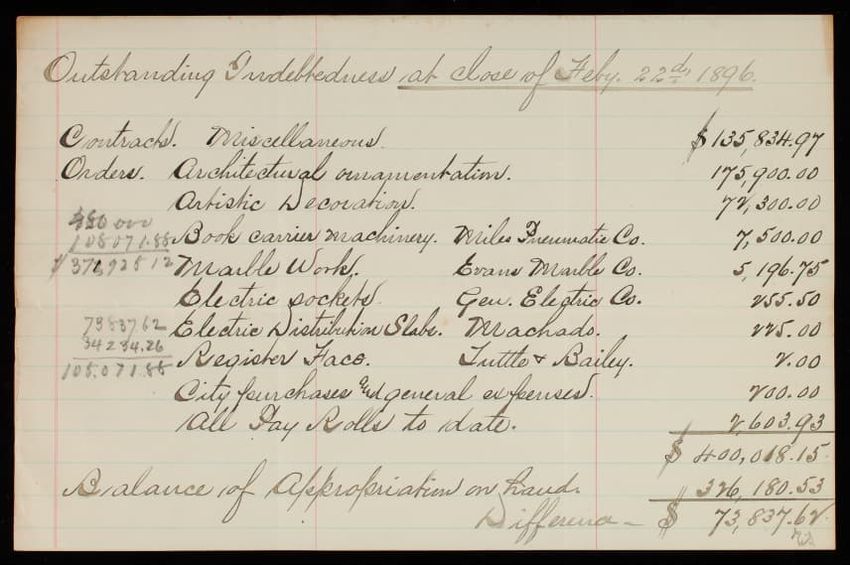 Outstanding Indebtedness at close of Feby. 22d, 1896.
Contracts. Miscellaneous. $135,834.97
Orders. Architectural ornamentation. 175,900.00
Artistic Decoration. 72,300.00
480 000
108071.88 Book carrier machinery. Miles Pneumatic Co. 7,500.00
$371928 12 Marble Work. Evans Marble Co. 5,196.75
Electric sockets. Gen. Electric Co. 255.50
73837.62 Electric Distribution Slabs. Machado. 225.00
34234.26 Register Face. Tuttle & Bailey. 2.00
108.071.88
City purchases and general expenses. 200.00
All Pay Rolls to date. 2,603.93
$ 400,018.15
Balance of Appropriation on hand. 326,180.53
Difference - $ 73,837.62